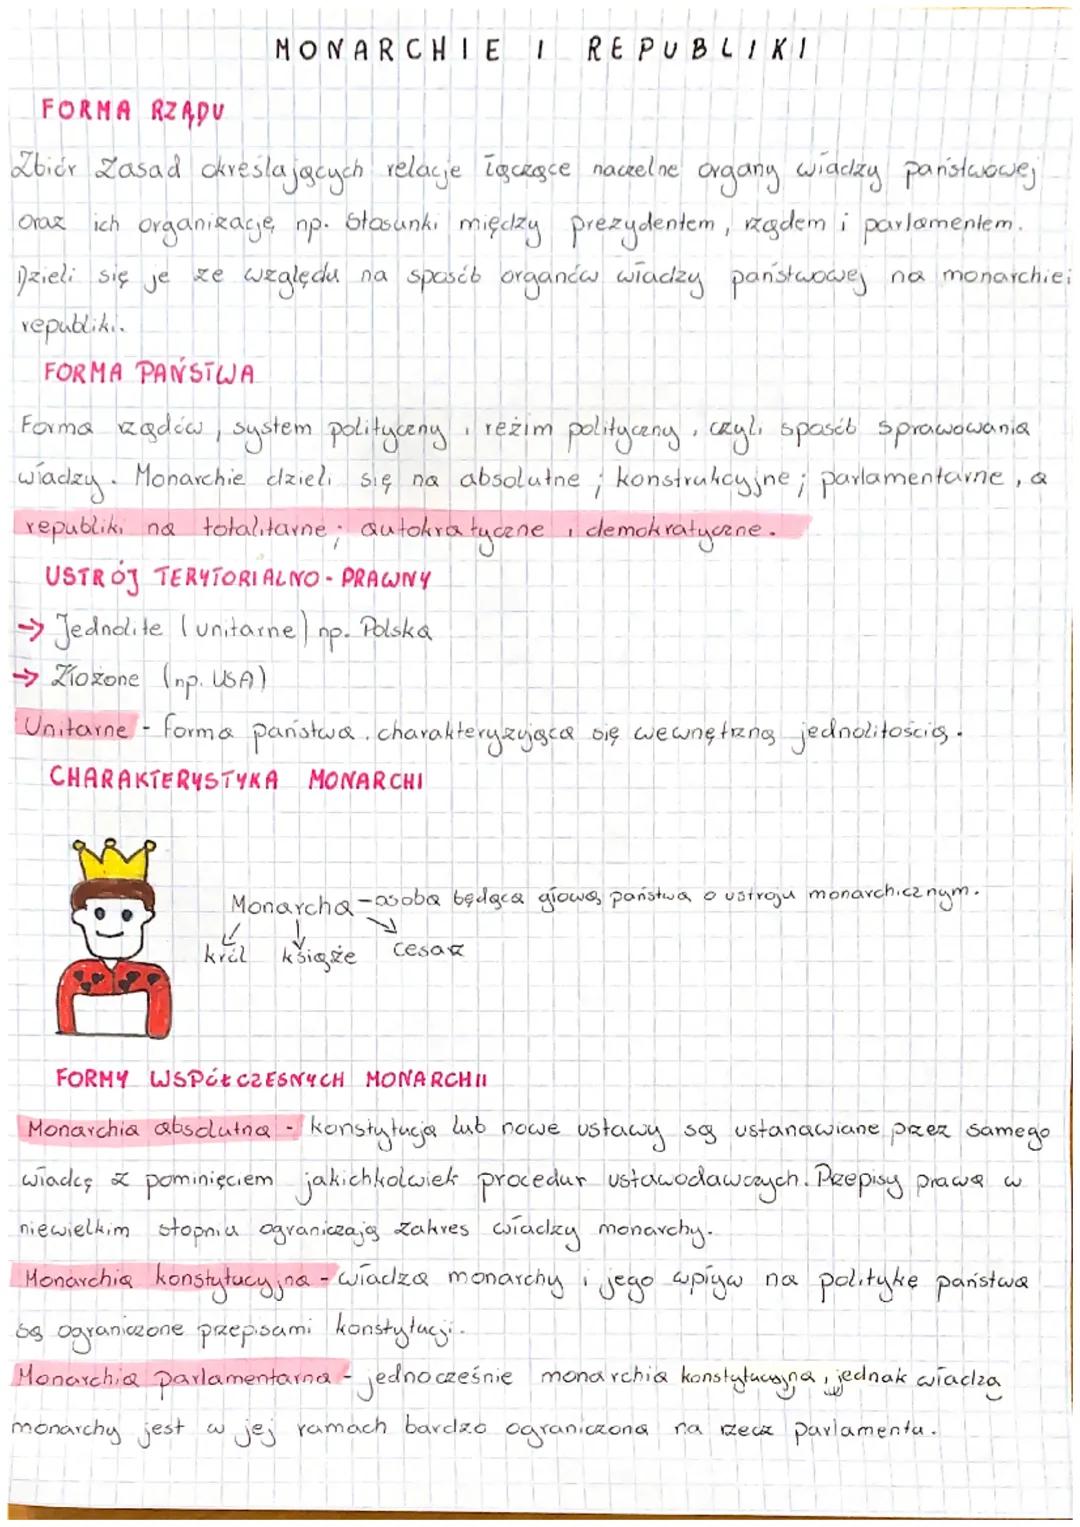 MONARCHIE I REPUBLIKI
FORMA RZĄDU
Zbiór zasad określających relacje łączące naczelne organy władzy państwowej
oraz ich organizację, np. stosunki między prezydentem, rządem i parlamentem.
Dzieli się je ze względu na sposób organów władzy państwowej na monarchie i
republiki.
FORMA PAŃSTWA
Forma rządów, system polityczny, reżim polityczny, czyli sposób sprawowania
władzy. Monarchie dzieli się na absolutne; konstrukcyjne; parlamentarne, a
republiki na totalitarne; autokratyczne i demokratyczne.
USTRÓJ TERYTORIALNO - PRAWNY
→ Jednolite (unitarne) np. Polska
→ Złożone (np. USA)
Unitarne - forma państwa, charakteryzująca się wewnętrzną jednolitością.
CHARAKTERYSTYKA MONARCHI
Monarcha - osoba będąca głową państwa o ustroju monarchicznym.
król książe cesarz
FORMY WSPÓŁCZESNYCH MONARCHII
Monarchia absolutna - konstytucja lub nowe ustawy są ustanawiane przez samego
władcę z pominięciem jakichkolwiek procedur ustawodawczych. Przepisy prawa w
niewielkim stopniu ograniczają zakres władzy monarchy.
Monarchia konstytucyjna - władza monarchy i jego wpływ na politykę państwa
są ograniczone przepisami konstytucji.
Monarchia parlamentarna - jednocześnie monarchia konstytucyjna, jednak władza
monarchy jest w jej ramach bardzo ograniczona na rzecz parlamentu.